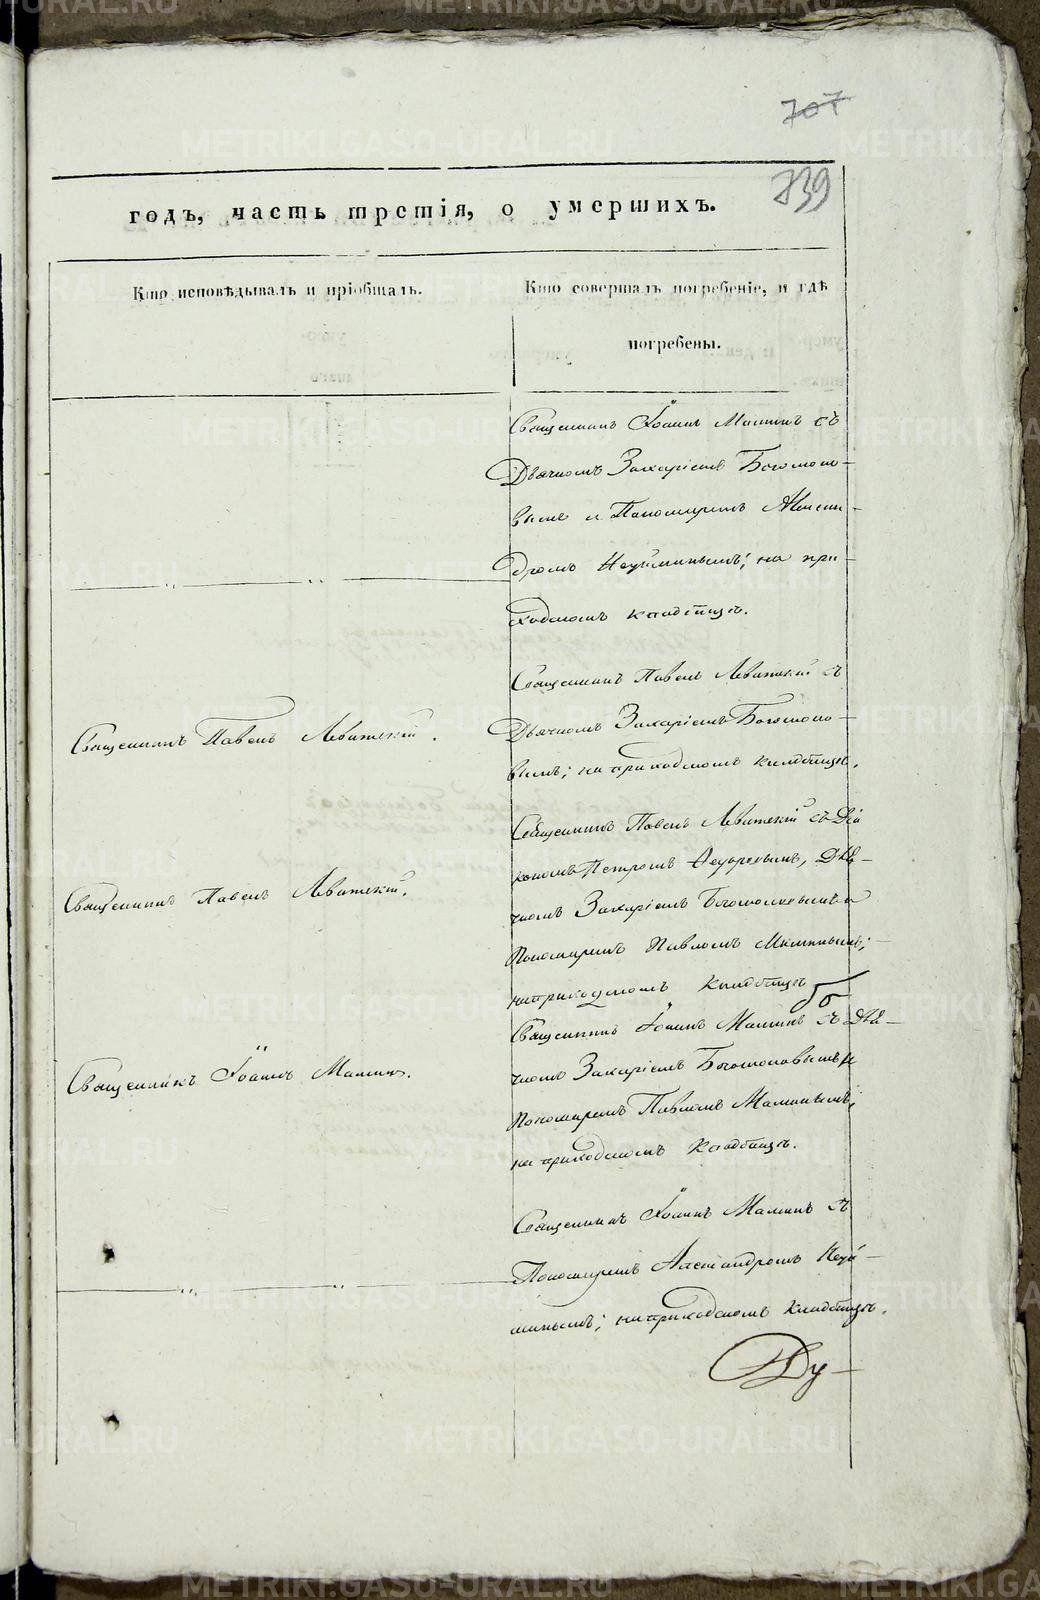 707
739
годъ, часть третія, о умершихъ.
Кто исповѣдывалъ и пріобщалъ.
Кто совершалъ погребеніе, и гдѣ
погребены.
Священникъ Іоаннъ Маминъ съ
Дьячкомъ Захаріемъ Богослово-
вымъ и Пономаремъ Алексан-
дромъ Неуйминымъ; на при-
ходскомъ кладбищѣ.
Священникъ Павелъ Левитскій.
Священникъ Павелъ Левитскій съ
Дьячкомъ Захаріемъ Богословo-
вымъ; на приходскомъ кладбищѣ.
Священникъ Павелъ Левитскій.
Священникъ Павелъ Левитскій съ Діа
кономъ Петромъ Дья-
чкомъ Захаріемъ Богословскимъ и
Пономаремъ Павломъ Маминымъ;
на приходскомъ кладбищѣ
Священникъ Іоаннъ Маминъ.
Священникъ Іоаннъ Маминъ съ Дья-
чкомъ Захаріемъ Богословскимъ и
Пономаремъ Павломъ Маминымъ;
на приходскомъ кладбищѣ.
Священникъ Іоаннъ Маминъ съ
Пономаремъ Александромъ Неуй-
минымъ; на приходскомъ кладбищѣ.
Ду-
METRIKI.GASO-URAL.RU